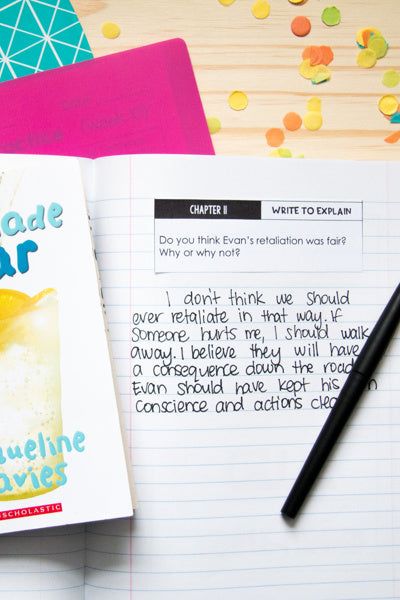 ade
ar
queline
avies
SCHOLASTIC
CHAPTER 11 WRITE TO EXPLAIN
Do you think Evan's retaliation was fair?
Why or why not?
I don't think we should
ever retaliate in that way. If
someone hurts me, I should walk
away. I believe they will have
a consequence down the road
Evan should have kept his
conscience and actions